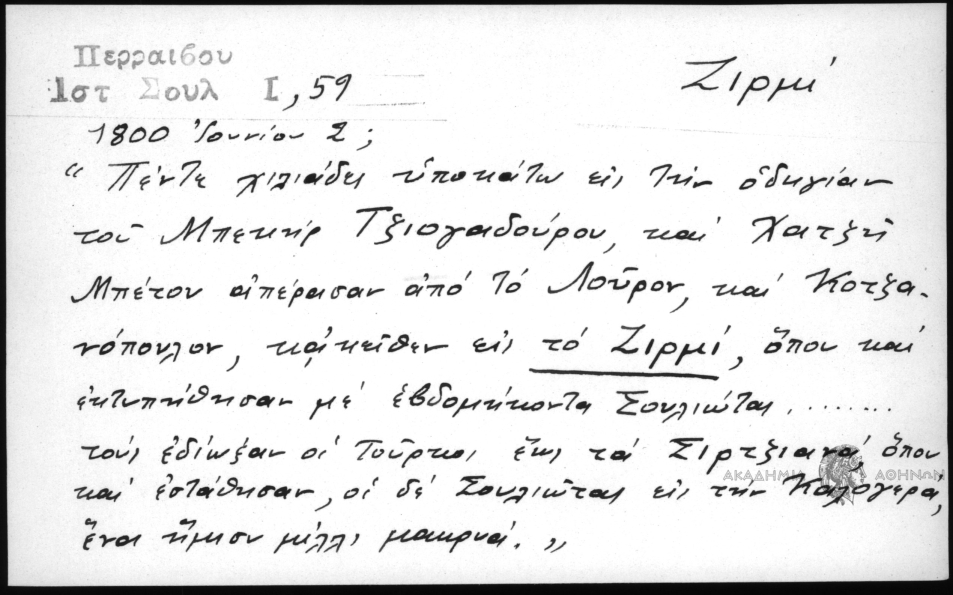 Περραιβου
Ιστ Σουλ Ι, 59
Ζιρμί
1800 Ἰουνίου 2;
“ Πέντε χιλιάδες ὑποκάτω εἰς τὴν ὁδηγίαν
τοῦ Μπεκὴρ Τζιογαδούρου, καὶ Χατζῆ
Μπέτου ἀπέρασαν ἀπό τό Λοῦρον, καί Κοτζα-
νόπουλον, κᾀκεῖθεν εἰς τό Ζιρμί, ὅπου καί
ἐκτυπήθησαν μέ ἑβδομήκοντα Σουλιώτας ........
τούς ἐδίωξαν οἱ Τοῦρκοι ἕως τά Σιρτζιανά, ὅπου
καί ἐστάθησαν, οἱ δέ Σουλιῶται εἰς τήν Καλογερά,
ἕνα ἥμισυ μίλλι μακρυά. „
ΑΚΑΔΗΜΙΑ ΑΘΗΝΩΝ